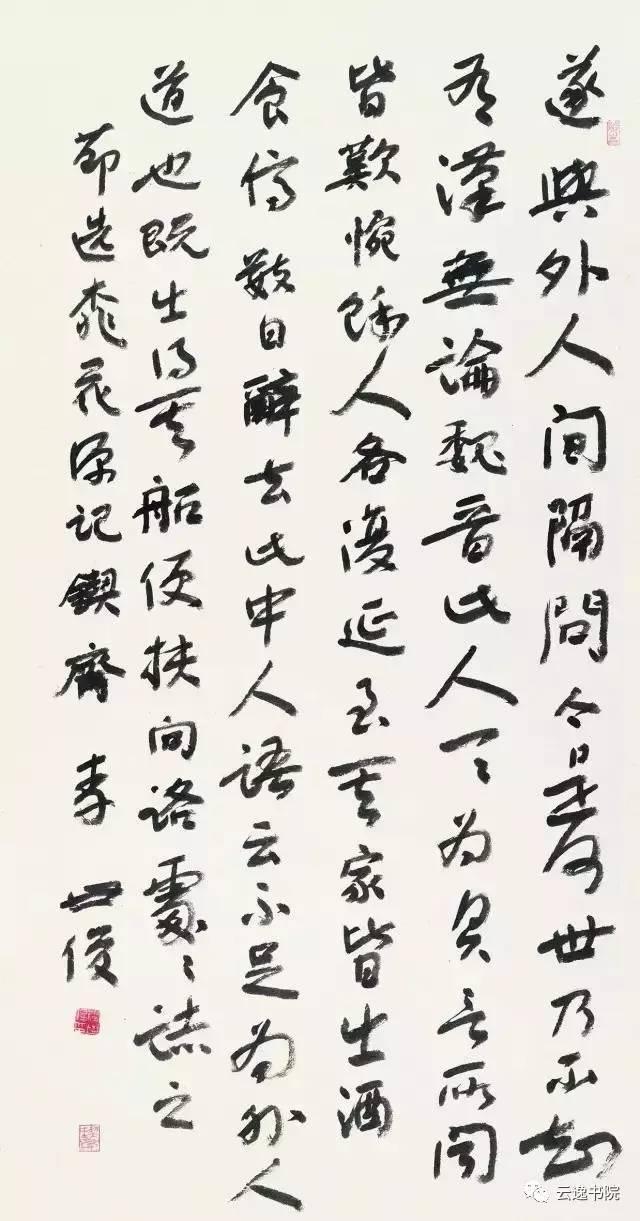 遂與外人間隔問今是何世乃不知
有漢無論魏晋此人一一为具言所闻
皆歎惋餘人各復延至其家皆出酒
食停數日辭去此中人語云不足为外人
道也既出得其船便扶向路處〻誌之
节选桃花源记鍥齋李世俊
云逸书院